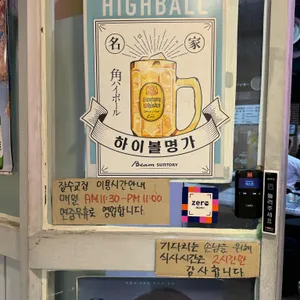 HIGHBALL
名 家
角ハイボール
하이볼명가
Beam SUNTORY
장수교집 이용시간안내
매일 AM 11:30 - PM 11:00
연중무휴로 영업합니다.
zero
기다리는 손님을 위해
식사시간은 2시간만
감사합니다.